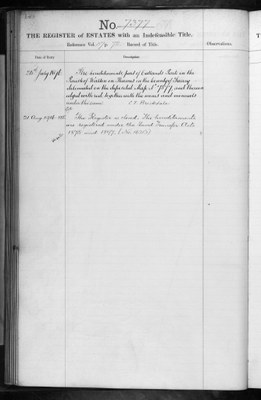 No. 7277
THE REGISTER of ESTATES with an Indefeasible Title.
Reference Vol. Record of Title.
Observations.
Date of Entry.
Description.
26th July 1876.
The hereditaments part of Oatlands Park in the
Parish of Walton on Thames in the County of Surrey
delineated on the deposited Map No. 7277 and thereon
edged with red, together with the mines and minerals
under the same
21 Aug
This Register is closed. The hereditaments
are registered under the Land Transfer Acts
1875 and 1897.